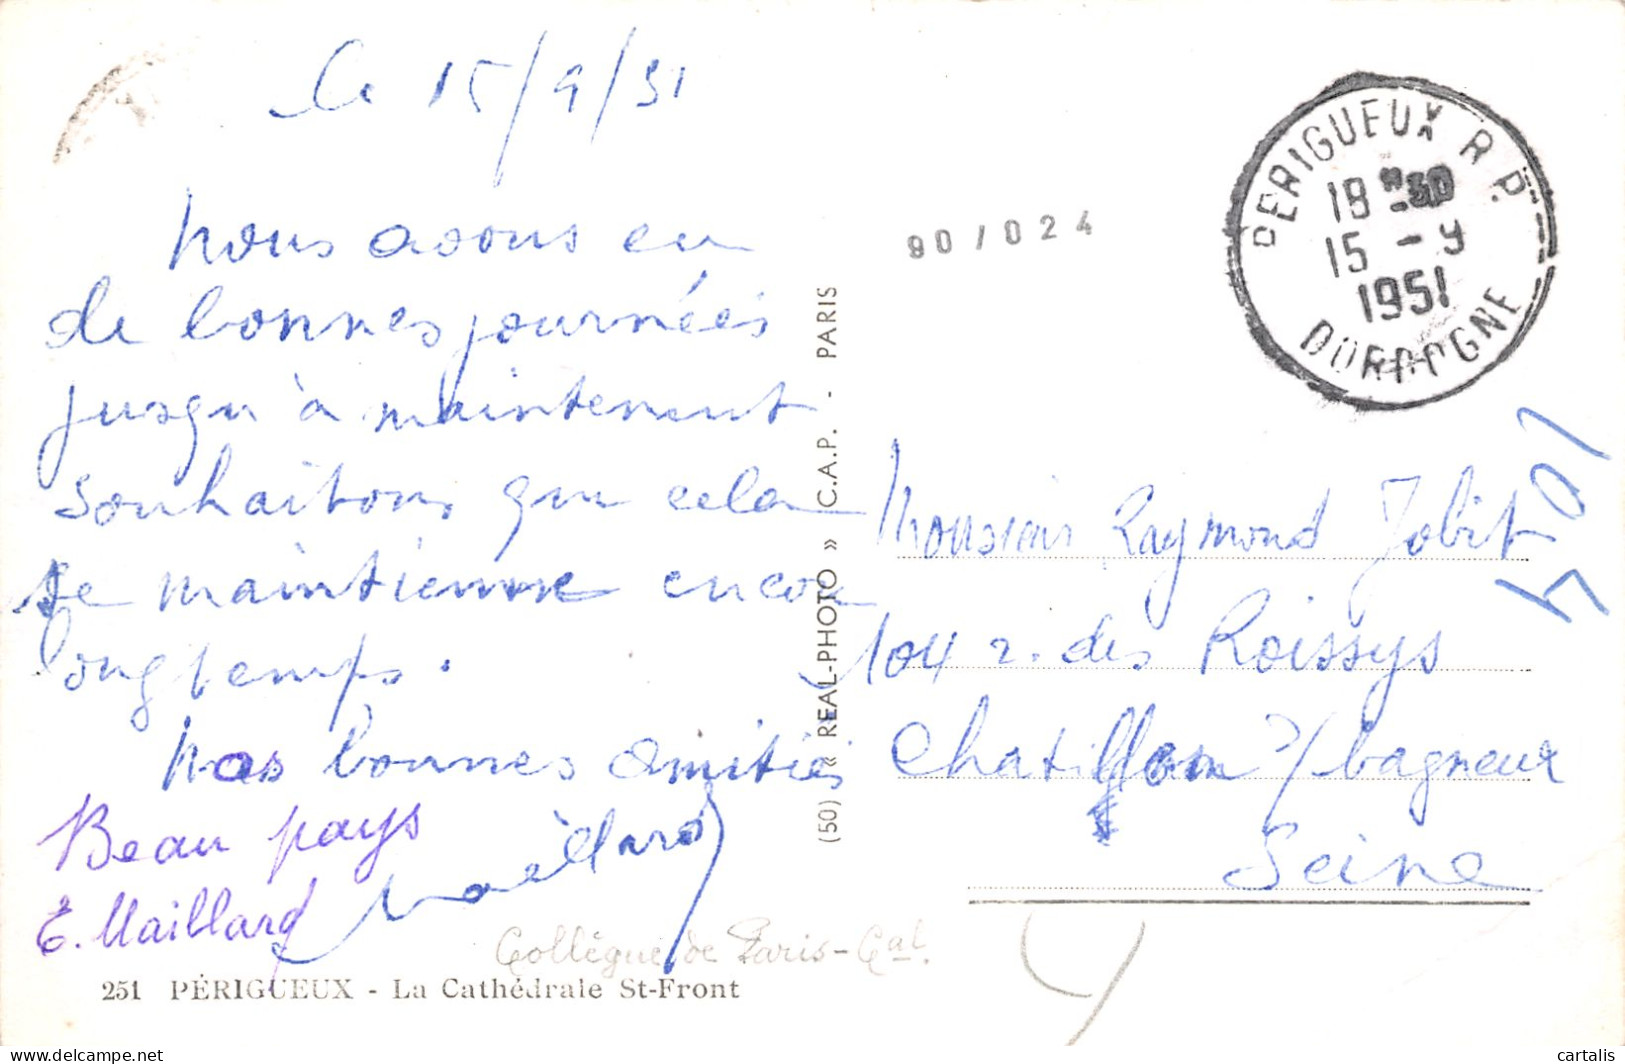 Le 15/9/51
Nous avons eu
de bonnes journées
jusqu'à maintenant
souhaitons que cela
se maintienne encore
longtemps.
Nos bonnes amitiés
Beau pays
E. Maillard
251 PÉRIGUEUX - La Cathédrale St-Front
Collègue de Paris-Gal.
(50) « REAL-PHOTO » C.A.P. - PARIS
90/024
PERIGUEUX R.P.
18 H 30
15 - 9
1951
DORDOGNE
Monsieur Raymond Jobit
104 r. des Roissys
Chatillon s/ bagneux
Seine
delcampe.net
cartalis